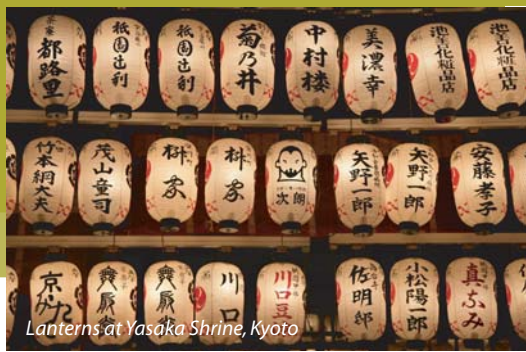 茶寮 都路里
祇園辻利
祇園辻利
菊乃井
中村楼
美濃幸
池善化粧品店
池善化粧品店
竹本綱大夫
茂山童司
枡家
枡家
次朗
矢野一郎
矢野一郎
安藤孝子
川口
川口豆
佐明邸
小松陽一郎
真ふみ
Lanterns at Yasaka Shrine, Kyoto